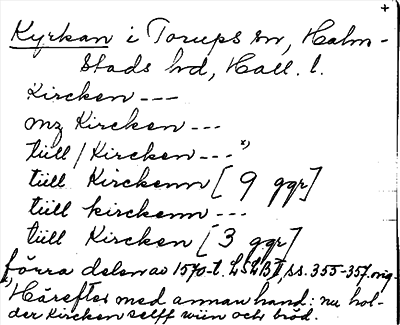 +
Kyrkan i Torups sn, Halm-
stads hd, Hall. l.
Kircken ---
mz Kircken ---
tüll / Kircken --- x)
tüll Kirckenn [9 ggr]
tüll kirckenn ---
tüll Kircken [3 ggr]
förra delen av 1570-t. ss. 355-357. orig.
x) Härefter med annan hand: nu hol-
der Kircken selff wiin och bröd.